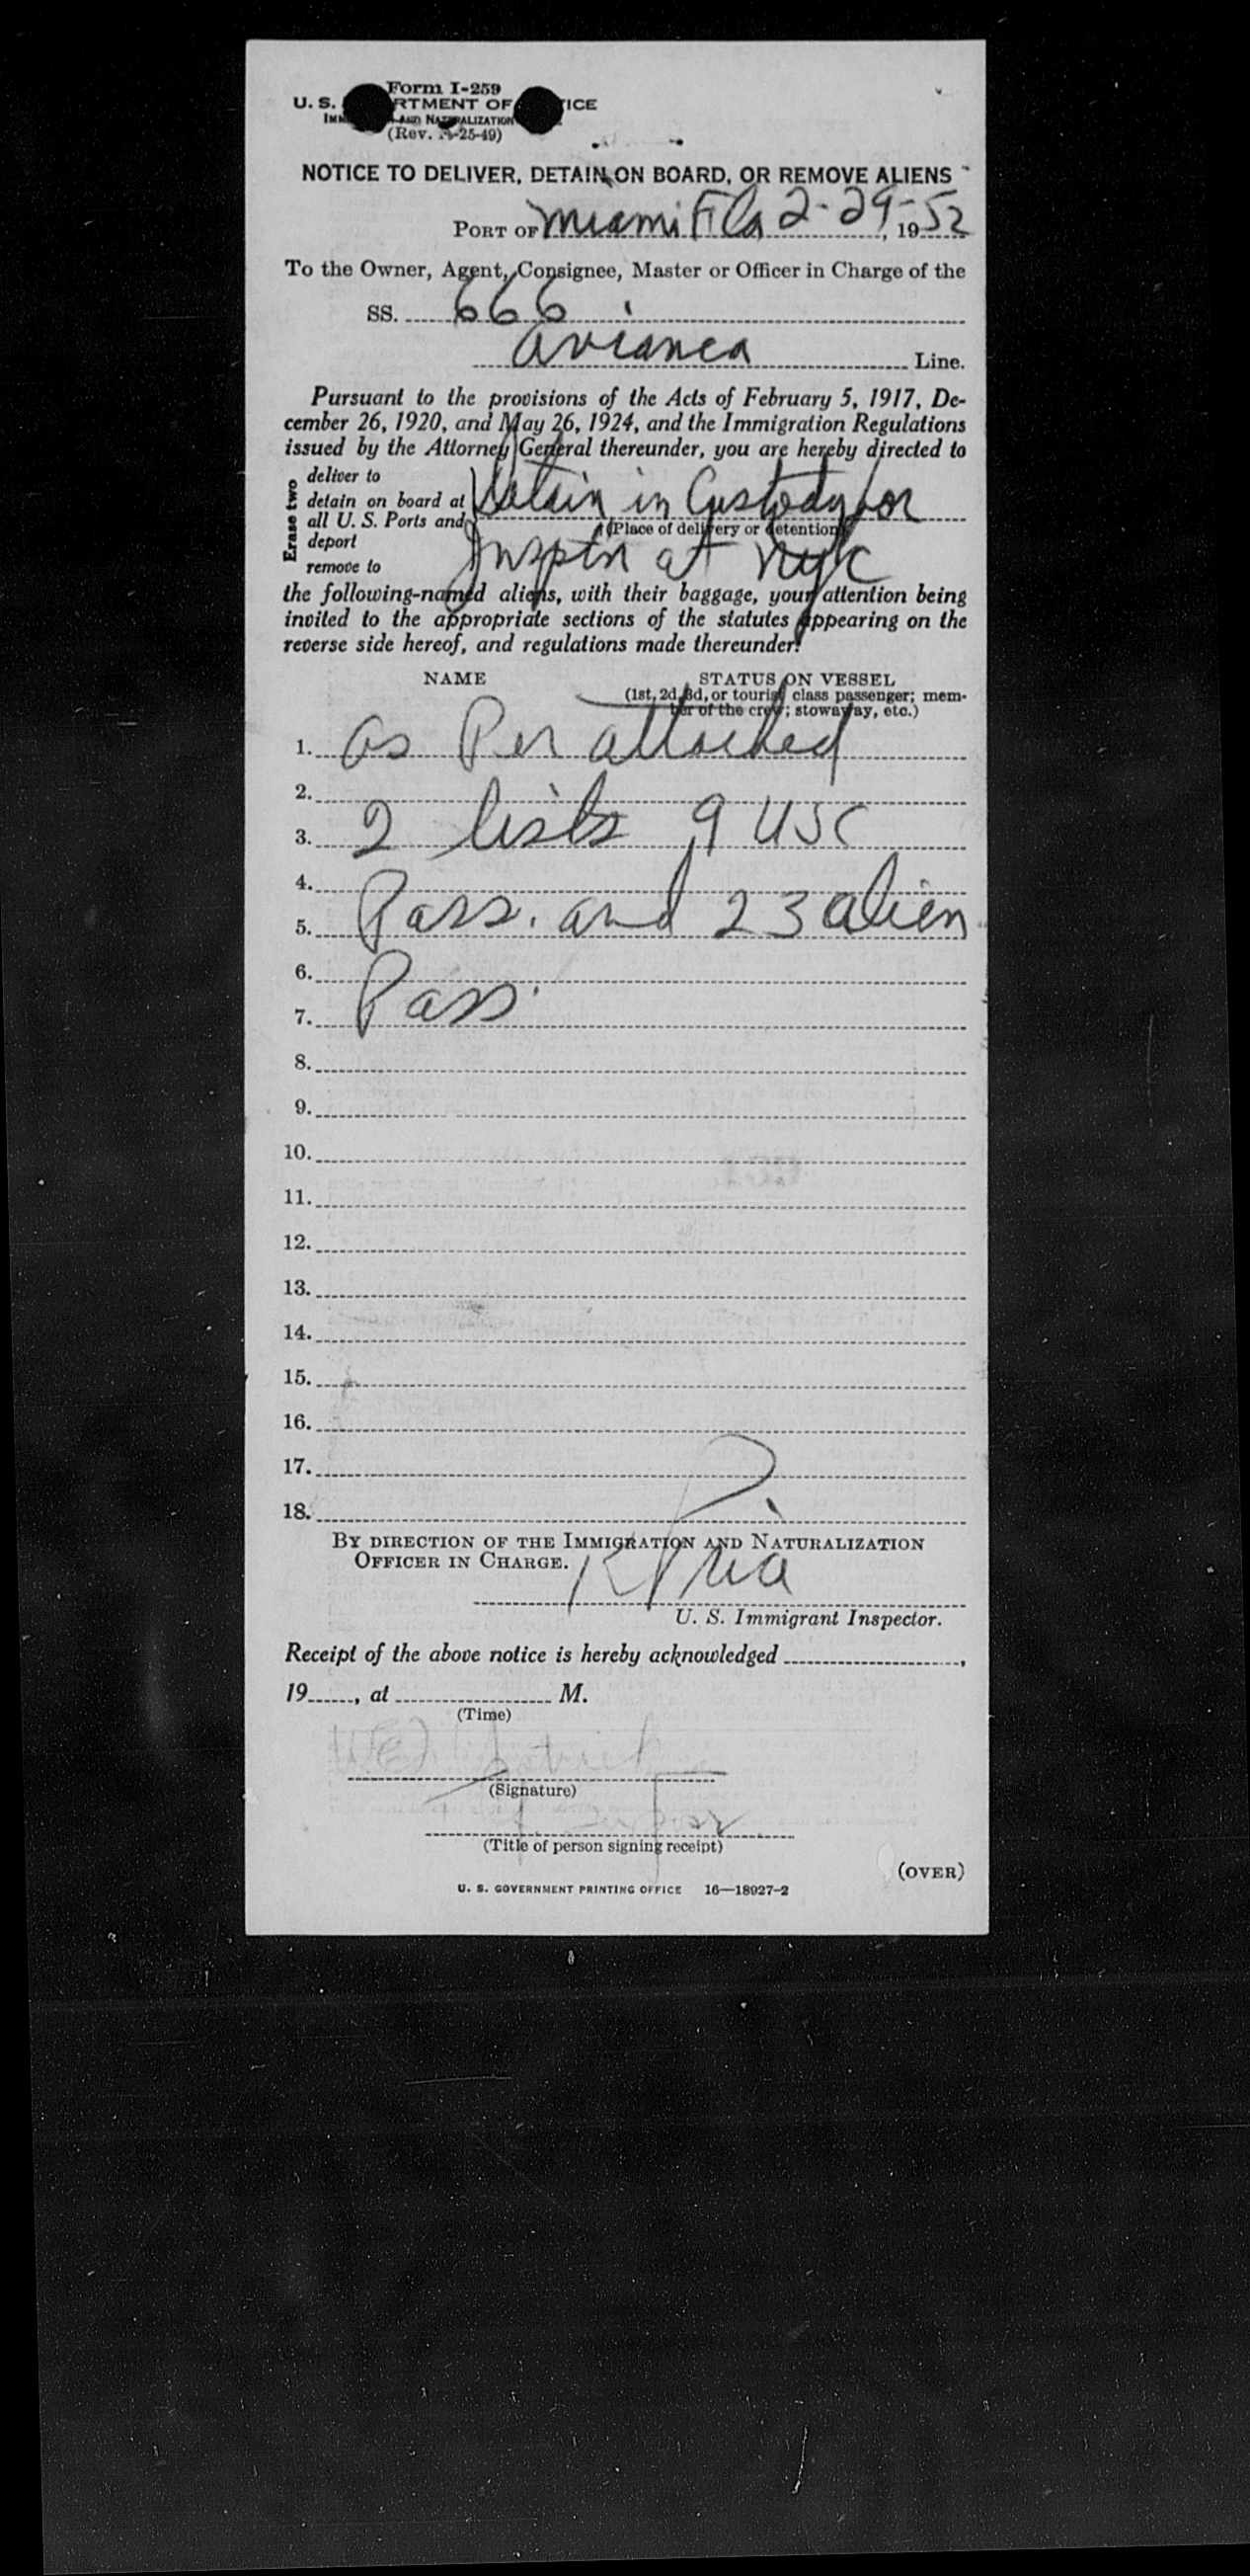 Form I-259
U. S. RTMENT OF ICE
AND NATURALIZATION
(Rev. -25-49)
NOTICE TO DELIVER, DETAIN ON BOARD, OR REMOVE ALIENS
PORT OF Miami Fla 2-29-, 1952
To the Owner, Agent, Consignee, Master or Officer in Charge of the
SS. 666
Avianca Line.
Pursuant to the provisions of the Acts of February 5, 1917, De-
cember 26, 1920, and May 26, 1924, and the Immigration Regulations
issued by the Attorney General thereunder, you are hereby directed to
Erase two
deliver to
detain on board at Detain in Custody for
all U. S. Ports and
(Place of delivery or detention)
deport Insptn at NYC
remove to
the following-named aliens, with their baggage, your attention being
invited to the appropriate sections of the statutes appearing on the
reverse side hereof, and regulations made thereunder:
NAME STATUS ON VESSEL
(1st, 2d, 3d, or tourist class passenger; mem-
ber of the crew; stowaway, etc.)
1. As Per attached
2.
3. 2 lists 9 USC
4.
5. Pass. and 23 alien
6.
7. Pass.
8.
9.
10.
11.
12.
13.
14.
15.
16.
17.
18.
BY DIRECTION OF THE IMMIGRATION AND NATURALIZATION
OFFICER IN CHARGE.
U. S. Immigrant Inspector.
Receipt of the above notice is hereby acknowledged ,
19 , at M.
(Time)
(Signature)
(Title of person signing receipt)
(OVER)
U. S. GOVERNMENT PRINTING OFFICE 16—18927-2